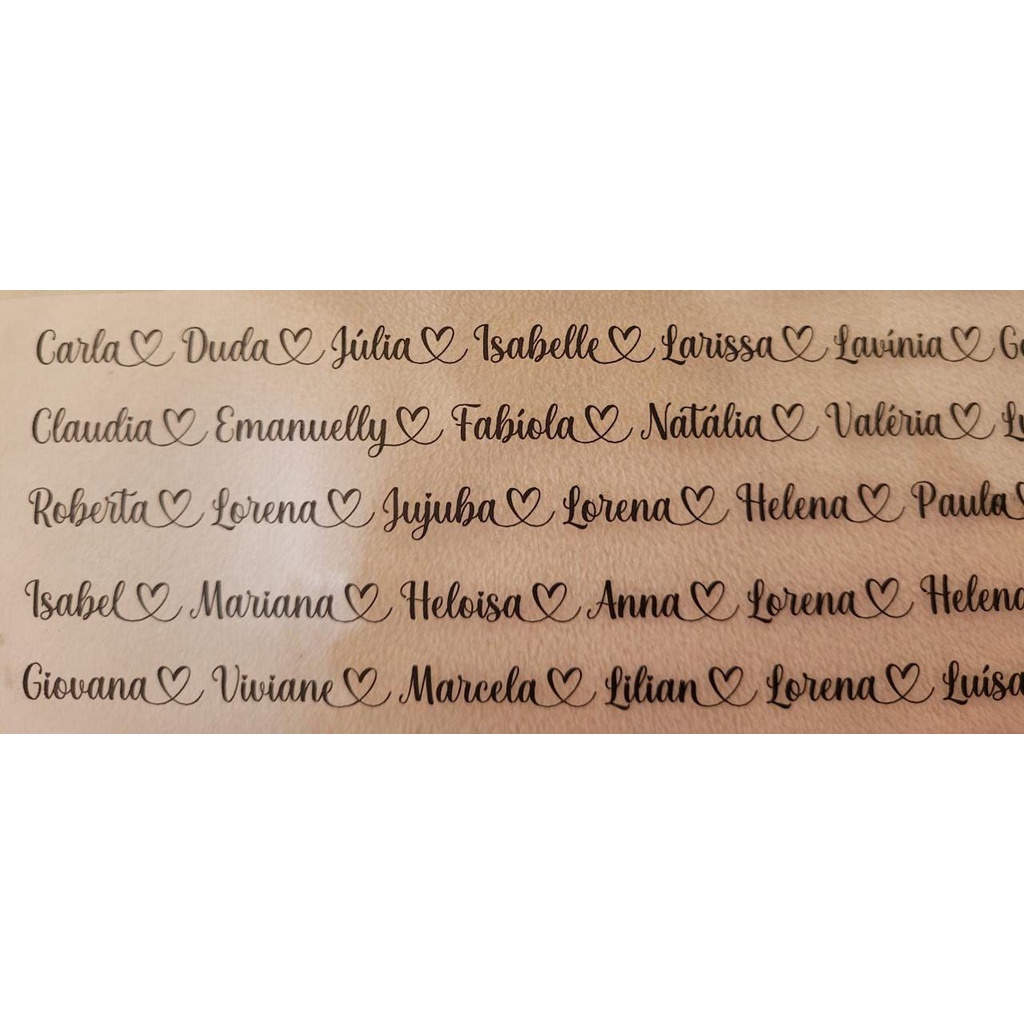 Carla Duda Júlia Isabelle Larissa Lavínia
Claudia Emanuelly Fabíola Natália Valéria
Roberta Lorena Jujuba Lorena Helena Paula
Isabel Mariana Heloisa Anna Lorena Helena
Giovana Viviane Marcela Lilian Lorena Luísa